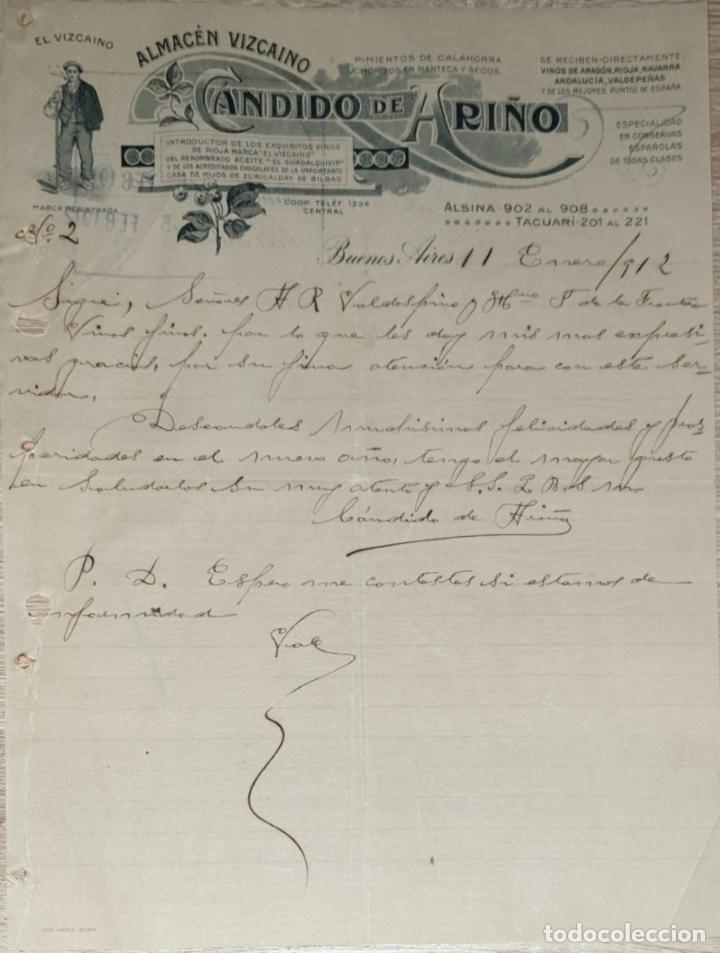 EL VIZCAINO
ALMACÉN VIZCAINO
PIMIENTOS DE CALAHORRA
CHORIZOS EN MANTECA Y SECOS
SE RECIBEN DIRECTAMENTE
VINOS DE ARAGÓN, RIOJA, NAVARRA
ANDALUCÍA, VALDEPEÑAS
Y DE LOS MEJORES PUNTOS DE ESPAÑA
CÁNDIDO DE ARIÑO
ESPECIALIDAD
EN CONSERVAS
ESPAÑOLAS
DE TODAS CLASES
INTRODUCTOR DE LOS EXQUISITOS VINOS
DE RIOJA MARCA "EL VIZCAINO"
DEL RENOMBRADO ACEITE "EL GUADALQUIVIR"
Y DE LOS ACREDITADOS CHOCOLATES DE LA IMPORTANTE
CASA DE HIJOS DE ZURICALDAY DE BILBAO
MARCA REGISTRADA
COOP. TELEF. 1234
CENTRAL
ALSINA 902 AL 908
TACUARÍ 201 AL 221
Nº 2
Buenos Aires 11 Enero/912
Sigue, Señores A R Valdespino y Hno J de la Frontera
Vinos finos, por lo que les doy mis mas expresi-
vas gracias, por su fina atención para con este ser-
vidor.
Deseandoles muchisimas felicidades y pros-
peridades en el nuevo año, tengo el mayor gusto
en saludarlos su muy atento y S.S. Q B S m
Cándido de Ariño
P. D. Espero me contestes si estamos de
conformidad
Vale